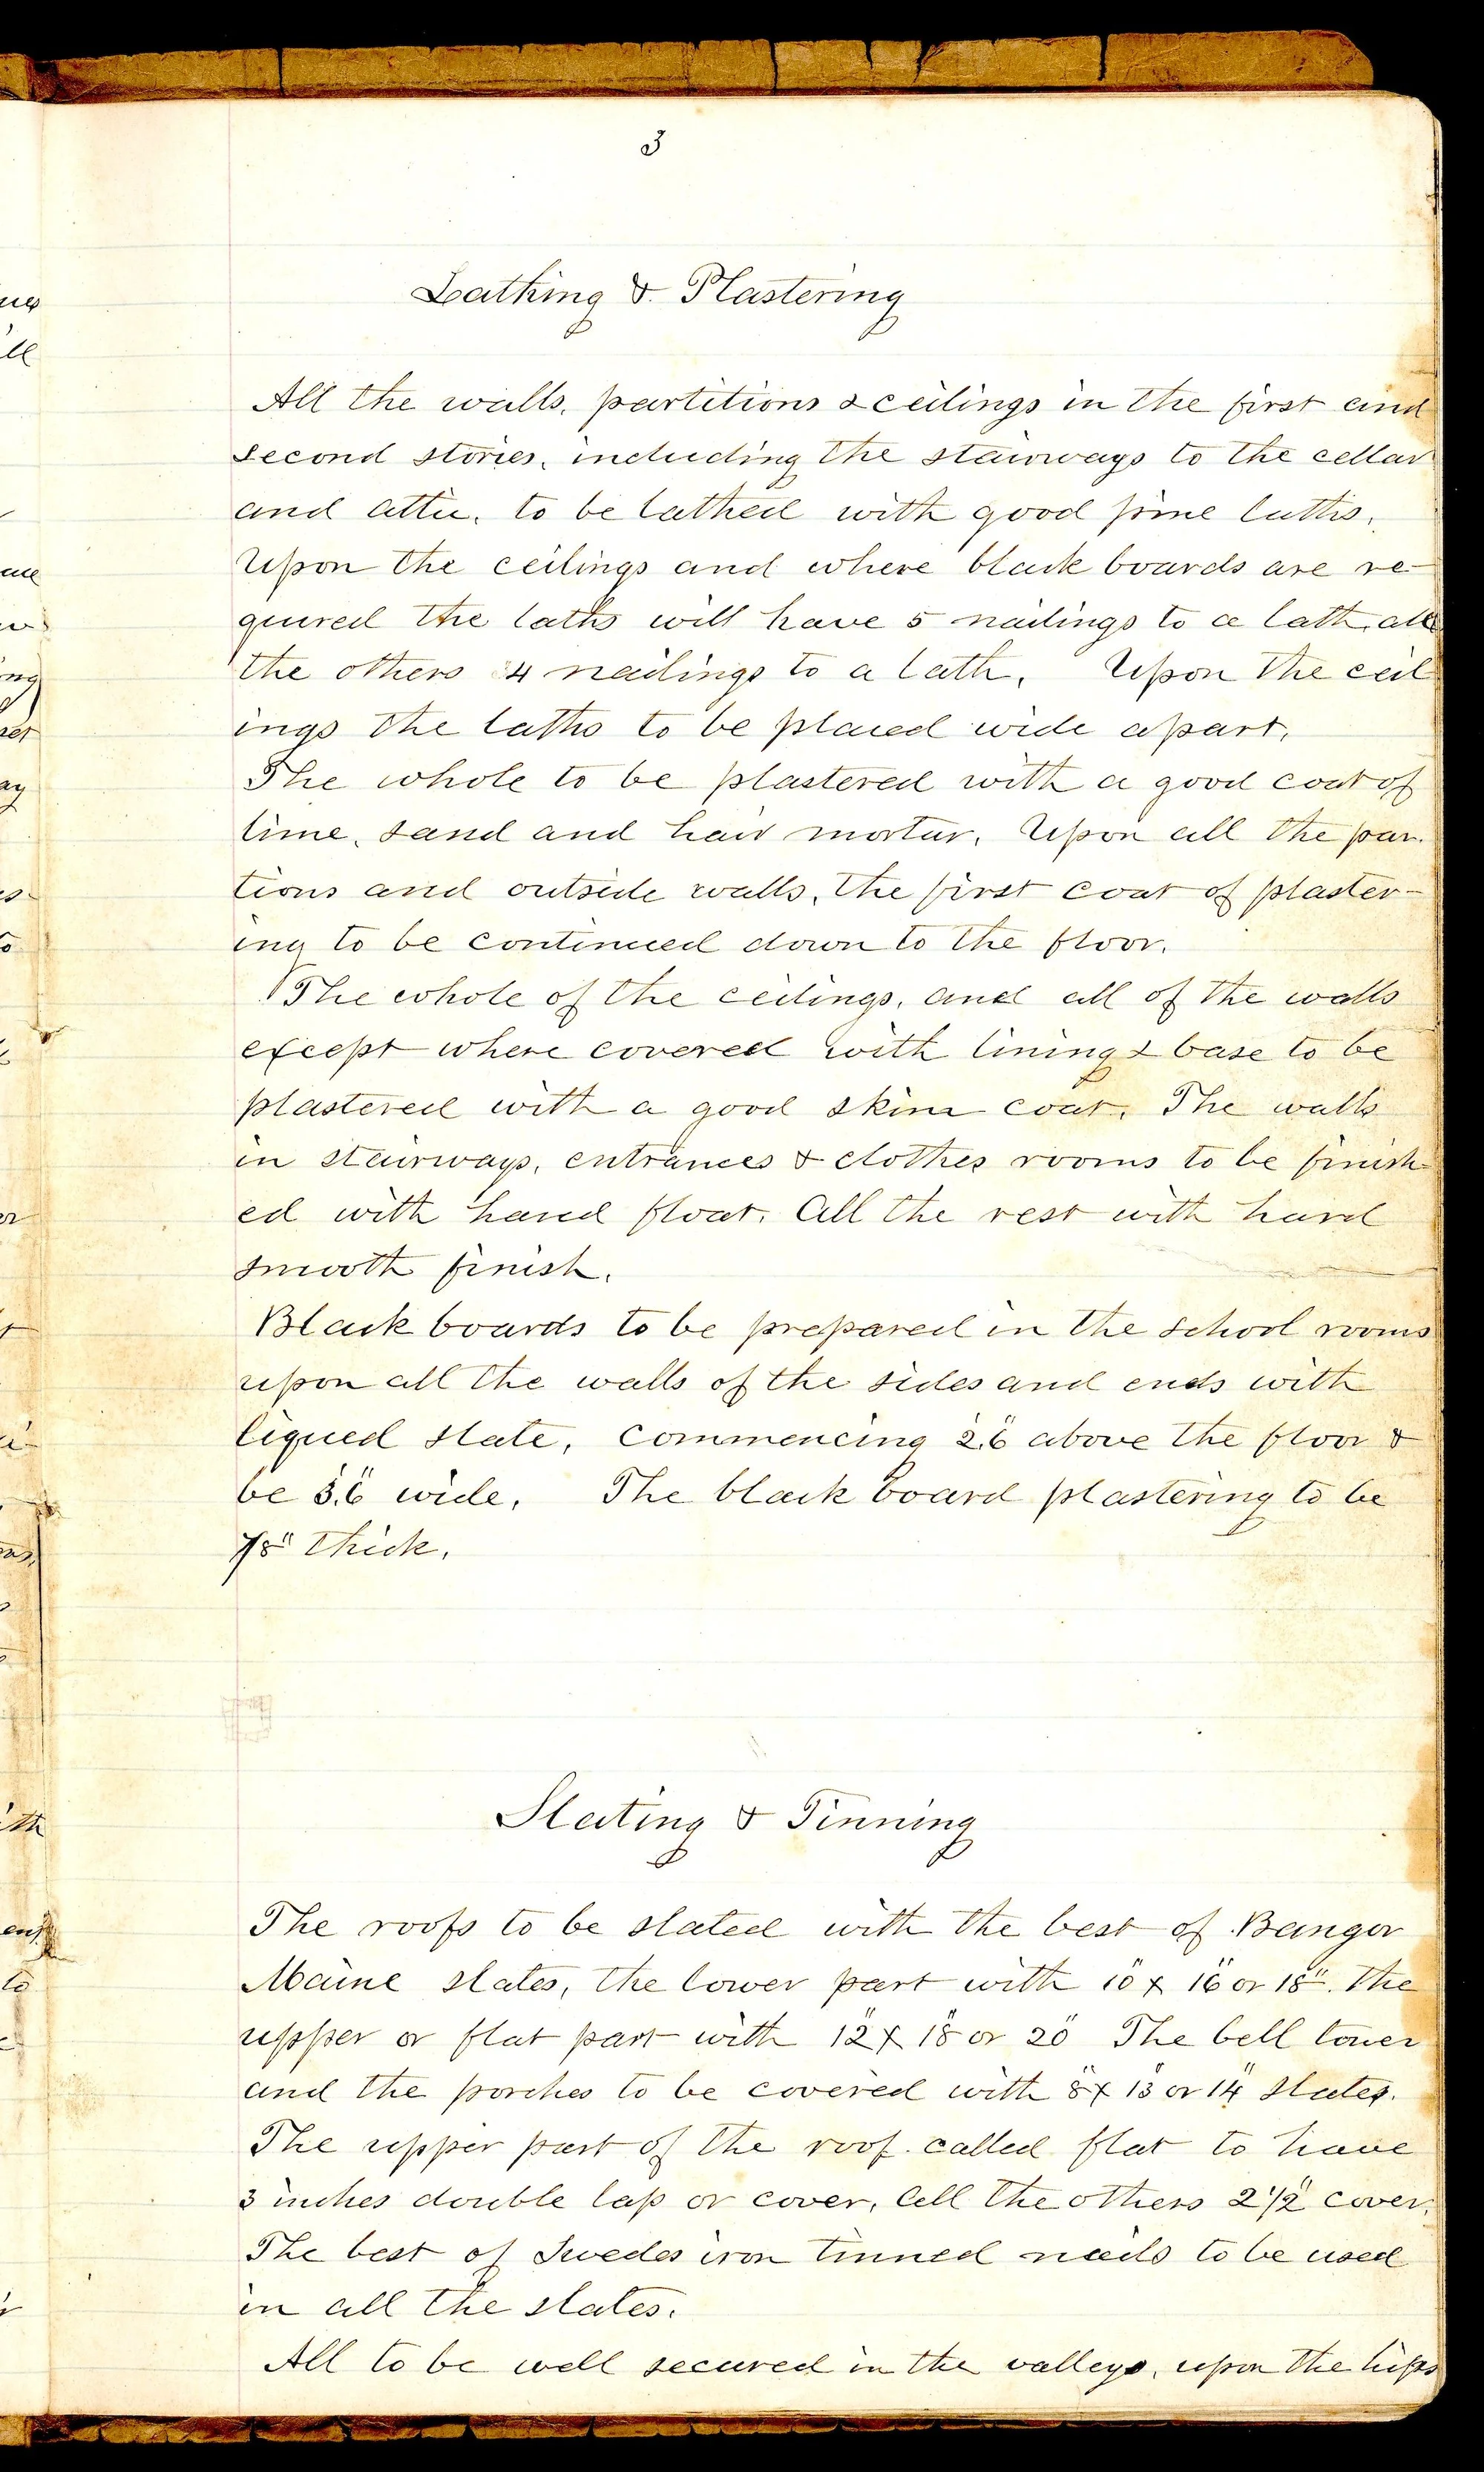 3
Lathing & Plastering
All the walls, partitions & ceilings in the first and
second stories, including the stairways to the cellar
and attic, to be lathed with good pine laths.
Upon the ceilings and where black boards are re-
quired the laths will have 5 nailings to a lath, all
the others 4 nailings to a lath. Upon the ceil
ings the laths to be placed wide apart.
The whole to be plastered with a good coat of
lime, sand and hair mortar. Upon all the par.
tions and outside walls, the first coat of plaster-
ing to be continued down to the floor.
The whole of the ceilings, and all of the walls
except where covered with lining & base to be
plastered with a good skim coat. The walls
in stairways, entrances & clothes rooms to be finish
ed with hand float. All the rest with hard
smooth finish.
Black boards to be prepared in the school rooms
upon all the walls of the sides and ends with
liqued slate, commencing 2'.6" above the floor &
be 3'.6" wide. The black board plastering to be
7/8" thick.
Slating & Tinning
The roofs to be slated with the best of Bangor
Maine slates, the lower part with 10" x 16" or 18". The
upper or flat part with 12" x 18" or 20" The bell tower
and the porches to be covered with 8" x 13" or 14" slates.
The upper part of the roof called flat to have
3 inches double lap or cover, all the others 2 1/2" cover.
The best of Swedes iron tinned nails to be used
in all the slates.
All to be well secured in the valleys, upon the hips